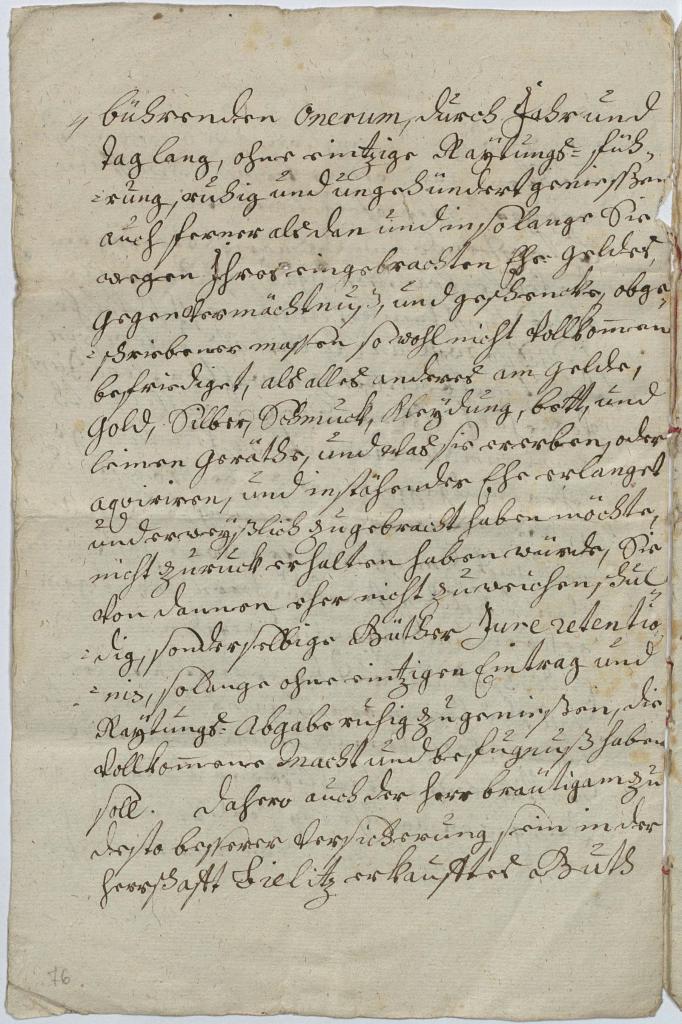 bührenden Onerum, durch Jahr und
Tag lang, ohne eintzige Raÿtungs-füh-
-rung, ruhig und ungehündert geniessen
auch ferner alsdan und in so lange Sie
wegen Ihres eingebrachten Ehe Geldes,
gegen Vermächtnuß, und geschencke, obge-
-schriebener massen so wohl nicht Vollkommen
befriediget, als alles anderes am Gelde,
Gold, Silber, Schmuck, Kleÿdung, bett, und
leinen Geräthe, und was sie ererben, oder
aqviriren, und in stähender Ehe erlanget
und erweÿßlich zugebracht haben möchte,
nicht zuruck erhalten haben würde, Sie
Von dannen eher nicht zu weichen schul
-dig, sonder selbige Gütter Jure retentio
-nis, solange ohne eintzigen Eintrag und
Raÿtungs-Abgabe ruhig zu genießen, die
Vollkommene Macht und befugnuß haben
soll. Dahero auch der Herr bräutigam zu
desto besserer Versicherung sein in der
Herrschafft Bielitz erkaufftes Guth
76